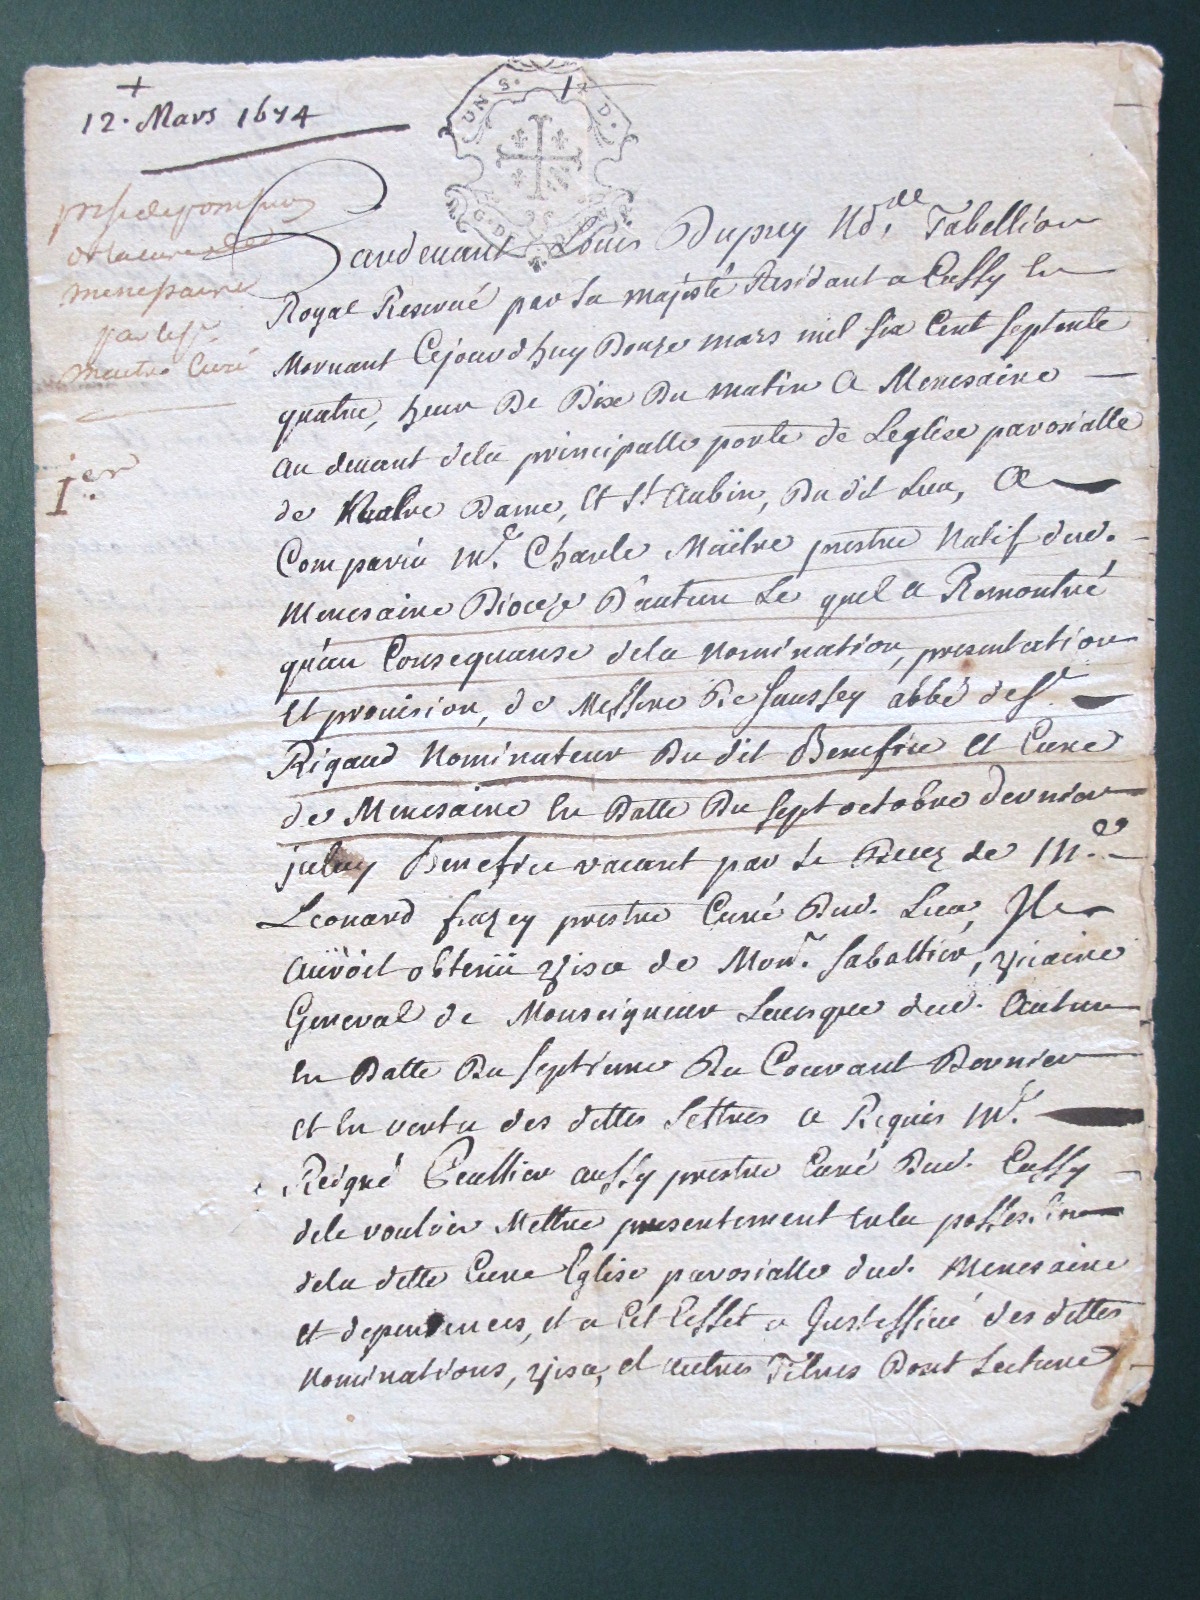 +
12. Mars 1674
UN S. D.
G. DE DIJON
prise de possession
de la cure de
menessaire
par le sr
maitre Curé
1er
Pardevant Louis Dupuy Nd.re Tabellion
Royal Reservé par Sa majesté Residant a Cussy En
Morvant Cejourdhuy Douze mars mil Six Cent Septente
quatre, heur De Dixe Du matin A Menesaire
au devant dela principalle porte de Leglise parosialle
de Nostre Dame, Et St Aubin, Du dit Lieu, A
Comparüe Mre. Charle Maïtre prestre Natif dud.
Menesaire Dioceze D'autun Le quel a Remontré
qu'au Consequanse dela Nomination, presentation
Et provision, de Messire De Saussey abbé de St
Rigaud Nominateur Du dit Benefice Et Cure
de Menesaire En Datte Du Sept octobre Dernier
jceluy Benefice vacant par Le Decez de Mre
Léonard fiezey prestre Curé Dud. Lieu, Jl
Auroit obtenü visa de Monr. Sabattier, viciaire
General de Monseigneur Levesque dud. Autun
En Datte Du Septieme Du Courant Dernier
et En vertu des dittes Lettres a Requis Mre.
Reigné Geallier aussy prestre Curé Dud. Cussy
dele vouloir Mettre presentement enla possession
dela ditte Cure Eglise parosialle dud. Menesaire
et dependences, et a Cet Effet a Justiffiée des dittes
nominations, visa, et autres Titres Dont Lecture